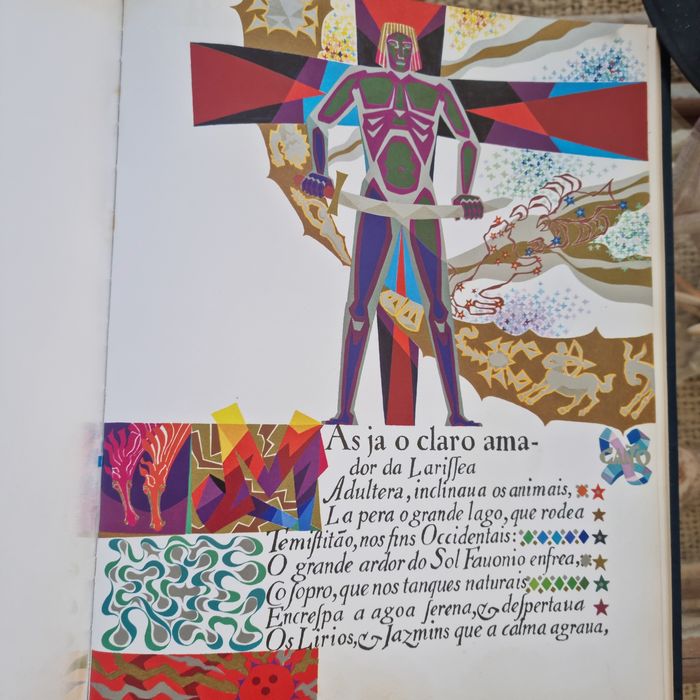 MAs ja o claro ama-
dor da Lariſſea
Adultera, inclinaua os animais,
La pera o grande lago, que rodea
Temiſtitão, nos fins Occidentais:
O grande ardor do Sol Fauonio enfrea,
Co ſopro, que nos tanques naturais
Encreſpa a agoa ſerena, & deſpertaua
Os Lirios, & Jazmins que a calma agraua,